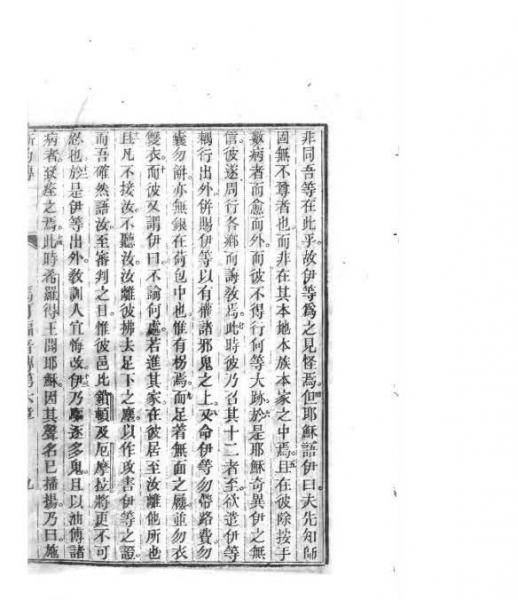 非同吾等在此乎。故伊等爲之見怪焉。但耶穌語伊曰。夫先知師
固無不尊者也。而非在其本地本族本家之中焉。且在彼除按手
數病者而愈而外。而彼不得行何等大跡。於是耶穌奇異伊之無
信。彼遂周行各鄉而誨教焉。此時彼乃召其十二者至。欲遣伊等
耦行出外。併賜伊等以有權諸邪鬼之上。又命伊等勿帶路費。勿
囊勿餅。亦無銀在荷包中也。惟有柺焉。而足着無面之屨。並勿衣
雙衣。而彼又謂伊曰。不論何處。若進其家。在彼居至汝離他所也。
且凡不接汝。不聽汝。汝離彼拂去足下之塵。以作攻害伊等之證。
而吾確然語汝。至審判之日。惟彼邑比鎖頓及厄摩拉將更不可
忍也。於是伊等出外。教訓人宜悔改。伊乃塵逐多鬼。且以油傅諸
病者痊之焉。此時希羅得王聞耶穌。因其聲名已播揚。乃曰。施
馬可福音傳第六章 九